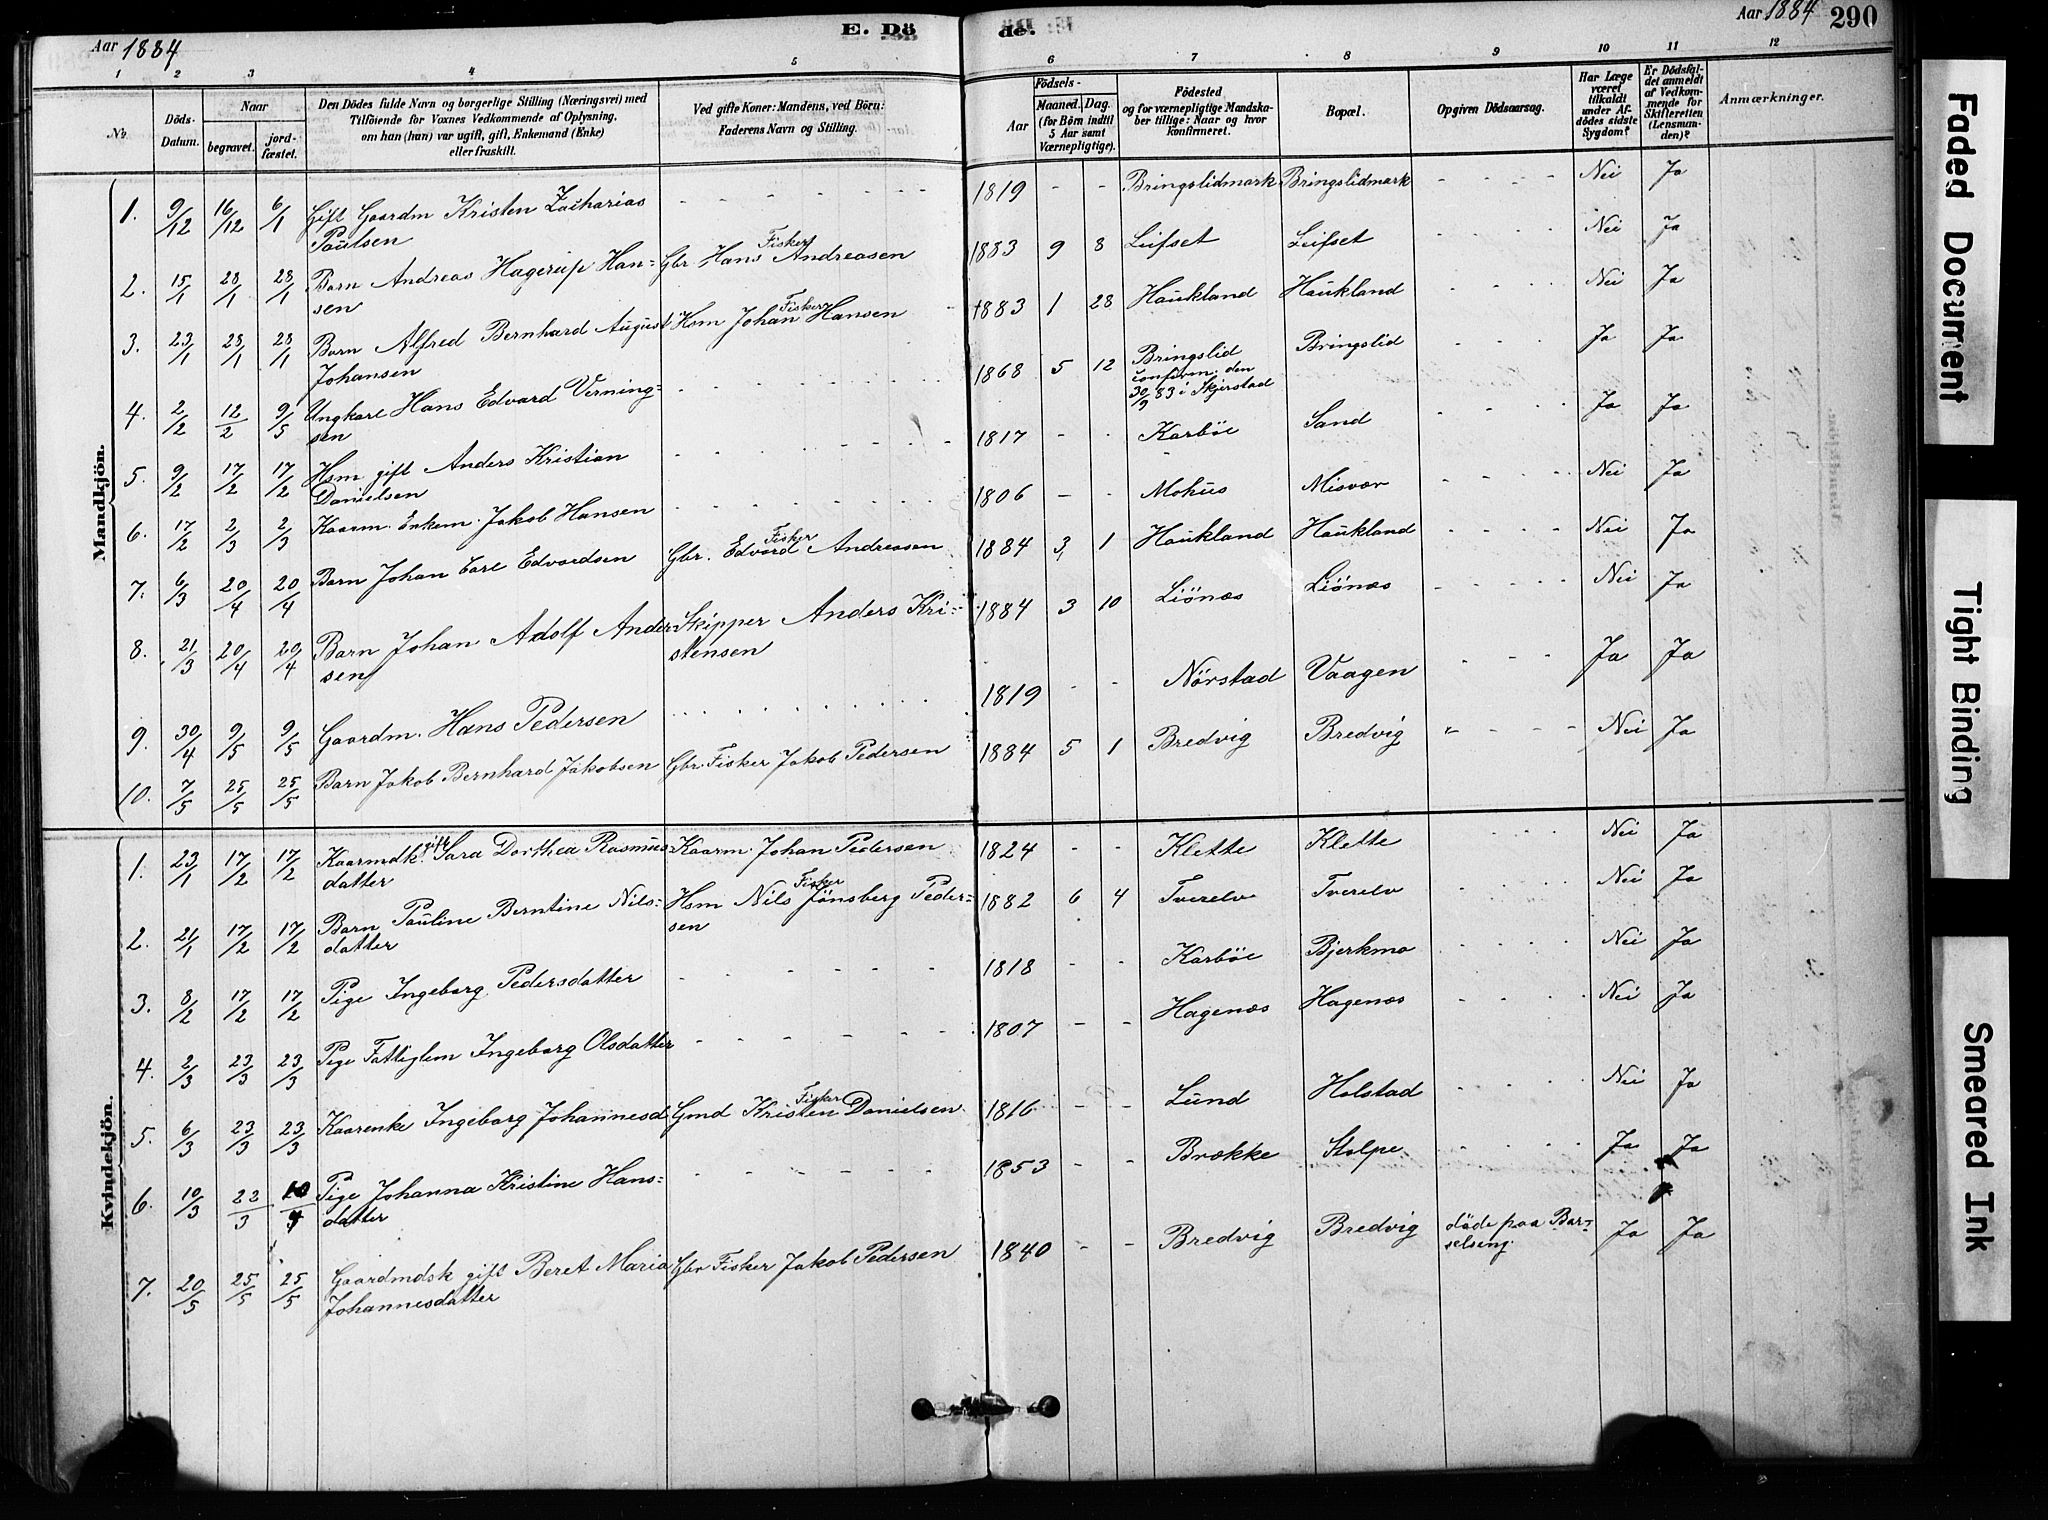 Aar 1884
E. Dö
de.
Aar 1884 290
1 2 3 4 5 6 7 8 9 10 11 12
No.
Döds-Datum.
Naar
begravet.
jordfæstet.
Den Dödes fulde Navn og borgerlige Stilling (Næringsvei) med
Tilföiende for Voxnes Vedkommende af Oplysning,
om han (hun) var ugift, gift, Enkemand (Enke)
eller fraskilt.
Ved gifte Koner: Mandens, ved Börn:
Faderens Navn og Stilling.
Födsels-
Aar
Maaned. Dag.
(for Börn indtil
5 Aar samt
Værnepligtige).
Födested
og for værnepligtige Mandska-
ber tillige: Naar og hvor
konfirmeret.
Bopæl.
Opgiven Dödsaarsag.
Har Læge
været
tilkaldt
under Af-
dödes sidste
Sygdom?
Er Dödsfal-
det anmeldt
af Vedkom-
mende for
Skifteretten
(Lensman-
den)?
Anmærkninger.
Mandkjön.
1. 9/12 16/12 6/1 Gift Gaardm Kristen Zacharias
Paulsen - - - - - 1819 - - Bringslidmark Bringslidmark - - - - Nei Ja
2. 15/1 28/1 28/1 Barn Andreas Hagerup Han-
sen Gbr Fisker Hans Andreasen 1883 9 8 Leifset Leifset - - - - Nei Ja
3. 23/1 28/1 28/1 Barn Alfred Bernhard August
Johansen Hsm Fisker Johan Hansen 1883 1 28 Haukland Haukland - - - - Nei Ja
4. 2/2 12/2 9/5 Ungkare Hans Edvard Verning-
sen - - - - 1868 5 12 Bringslid
confirm. den
30/9 83 i Skjerstad Bringslid - - - - Ja Ja
5. 9/2 17/2 17/2 Hsm gift Anders Kristian
Danielsen - - - - 1817 - - Karböe Sand - - - - Ja Ja
6. 17/2 2/3 2/3 Kaarm. Enkem. Jakob Hansen - - - - 1806 - - Mohus Misvær - - - - Nei Ja
7. 6/3 20/4 20/4 Barn Johan Carl Edvardsen Gbr. Fisker Edvard Andreasen 1884 3 1 Haukland Haukland - - - - Nei Ja
8. 21/3 20/4 20/4 Barn Johan Adolf Ander
sen Skipper Anders Kri-
stensen 1884 3 10 Liönæs Liönæs - - - - Nei Ja
9. 30/4 9/5 9/5 Gaardm. Hans Pedersen - - - - 1819 - - Nörstad Vaagen - - - Ja Ja
10. 7/5 25/5 25/5 Barn Jakob Bernhard Jakobsen Gbr. Fisker Jakob Pedersen 1884 5 1 Bredvig Bredvig " - - - Nei Ja
Kvindekjön.
1. 23/1 17/2 17/2 Kaarmdk. gift Sara Dorthea Rasmus-
datter Kaarm. Johan Pedersen 1824 - - Klette Klette - - - Nei Ja
2. 21/1 17/2 17/2 Barn Pauline Berntine Nils-
datter Hsm Fisker Nils Jönsberg Peder-
sen 1882 6 4 Tverelv Tverelv - - - - Nei Ja
3. 8/2 17/2 17/2 Pige Ingeborg Pedersdatter - - - - 1818 - - Karböe Bjerkmo - - - - Nei Ja
4. 2/3 23/3 23/3 Pige Fattiglem Ingeborg Olsdatter - - - - 1807 - - Hagenæs Hagenæs - - - - Nei Ja
5. 6/3 23/3 23/3 Kaarenke Ingeborg Johannesd Gmd Fisker Kristen Danielsen 1816 - - Lund Holstad - - - - Nei Ja
6. 10/3 22/3 10/4 Pige Johanna Kristine Hans-
datter - - - - 1853 - - Brække Stolpe - - - - Ja Ja
7. 20/5 25/5 25/5 Gaardmdsk gift Beret Maria
Johannesdatter Gbr Fisker Jakob Pedersen 1840 - - Bredvig Bredvig döde paa Bar-
selseng. Ja Ja
Faded Document
Tight Binding
Smeared Ink